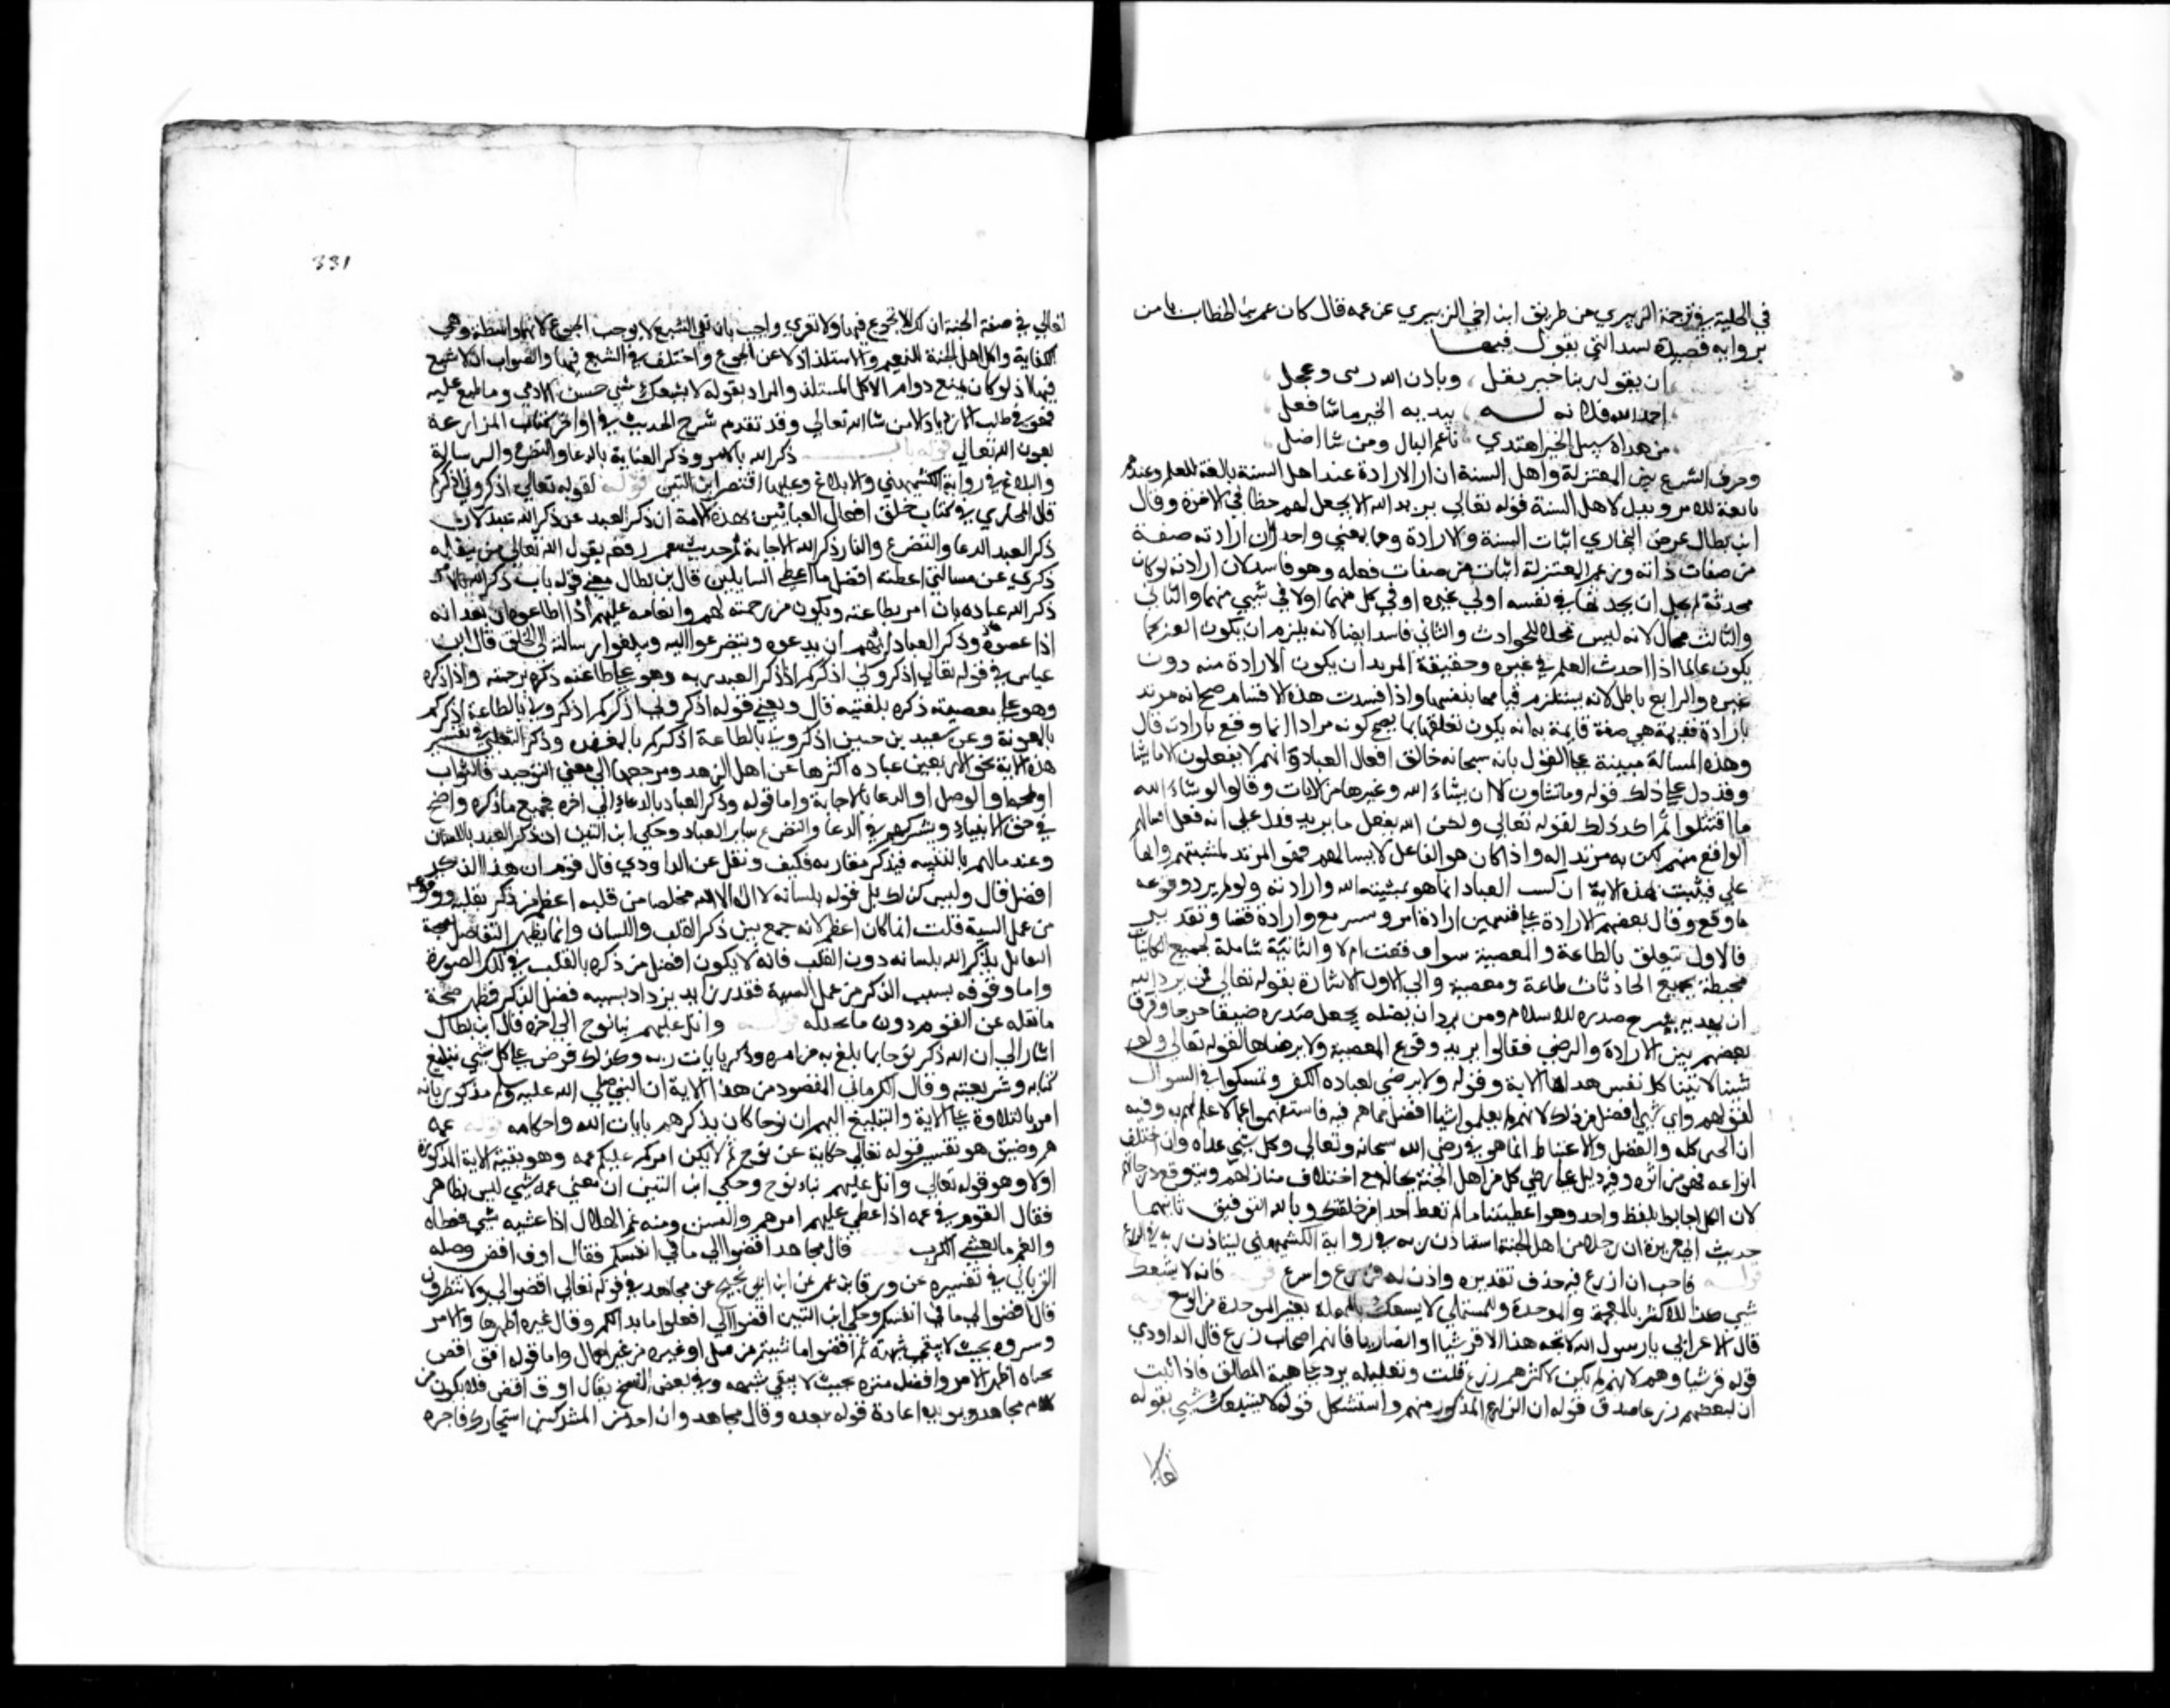 في الحلية في ترجمة الزهري من طريق ابن اخي الزهري عن عمه قال كان عمر بن الخطاب يامر
برواية قصيدة لبيد التي يقول فيها
ان تقوى ربنا خير نفل وباذن الله ريثى وعجل
احمد الله فلا ند له بيديه الخير ما شا فعل
من هداه سبل الخير اهتدى ناعم البال ومن شا اضل
وحرف النزاع بين المعتزلة واهل السنة ان الارادة عند اهل السنة تابعة للعلم وعندهم
تابعة للامر ويدل لاهل السنة قوله تعالي يريد الله الا يجعل لهم حظا في الاخرة وقال
ابن بطال غرض البخاري اثبات المشية والارادة وهما بمعني واحد وان ارادته صفة
من صفات ذاته وزعم المعتزلة انها من صفات فعله وهو فاسد لان ارادته لو كان
محدثة لم يخل ان يحدثها في نفسه او في غيره او في كل منهما او لا في شي منهما والثاني
والثالث محال لانه ليس محلا للحوادث والثاني فاسد ايضا لانه يلزم ان يكون الغير
يكون عالما اذا احدث العلم في غيره وحقيقة المريد ان يكون الارادة منه دون
غيره والرابع باطل لانه يستلزم قيامها بنفسها واذا فسدت هذه الاقسام صح انه مريد
بارادة قديمة هي صفة قايمة به انه يكون تعلقها بما يصح كونه مرادا انما وقع بارادته قال
وهذه المسالة مبينة علي القول بانه سبحانه خالق افعال العباد وانهم لا يفعلون الا ما يشا
وقد دل علي ذلك قوله وما تشاون الا ان يشاء الله وغيرها من الايات وقال ولو شاء الله
ما اقتتلوا ثم اكد ذلك لقوله تعالي ولكن الله يفعل ما يريد فدل علي انه فعل اقتتالهم
الواقع منهم لكونه مريدا له واذا كان هو الفاعل لاقتتالهم فهو المريد لمشيتهم والفاعل
علي فثبت بهذه الاية ان كسب العباد انما هو بمشيئة الله وارادته ولو لم يرد وقوعه
ما وقع وقال بعضهم الارادة علي قسمين ارادة امر وتشريع وارادة قضا وتقدير
فالاولي تتعلق بالطاعة والمعصية سوا وقعت ام لا والثانية شاملة لجميع الكاينات
محيطة بجميع الحادثات طاعة ومعصية والي الاول الاشارة بقوله تعالي فمن يرد الله
ان يهديه يشرح صدره للاسلام ومن يرد ان يضله يجعل صدره ضيقا حرجا وفرق
بعضهم بين الارادة والرضي فقالوا يريد وقوع المعصية ولا يرضاها لقوله تعالي ولو
شينا لاتينا كل نفس هداها الاية وقوله ولا يرضي لعباده الكفر وتمسكوا في السوال
لقولهم واي شي افضل من ذلك لانهم لم يعلموا شيا افضل مما هم فيه فاستفهموا عما لا علم لهم به وفيه
ان الخير كله والفضل والاغتباط انما هو في رضي الله سبحانه وتعالي وكل شي عداه وان اختلف
انواعه فهو من اثره وفيه دليل علي رضي كل من اهل الجنة بحاله مع اختلاف منازلهم وتنويع درجاتهم
لان الكل اجابوا بلفظ واحد وهو اعطيتنا ما لم تعط احدا من خلقك وبالله التوفيق ثانيهما
حديث ابي هريرة ان رجلا من اهل الجنة استاذن ربه في رواية الكشميهني يستاذن ربه في الزرع
قوله فاحب ان ازرع فيه حذف تقديره واذن له فزرع واسرع قوله فانه لا يشبعك
شي كذا للاكثر بالمعجمة والموحدة وللمستملي لا يسعك بالمهملة بغير الموحدة من الوسع
قال الاعرابي يا رسول الله لا تجد هذا الا قرشيا او انصاريا فانهم اصحاب زرع قال الداودي
قوله قرشيا وهم لانهم لم يكن لاكثرهم زرع قلت وتعليله يرد علي نفيه المطلق فاذا اثبت
ان لبعضهم زرعا صدق قوله ان الزارع المذكور منهم واستشكل قوله لا يشبعك شي بقوله
تعالي
331
تعالي في صفة الجنة ان لك الا تجوع فيها ولا تعري واجيب بان نفي الشبع لا يوجب الجوع لان بينهما واسطة وهي
الكفاية واكل اهل الجنة للتنعم والاستلذاذ لا عن الجوع واختلف في الشبع فيها والصواب ان لا شبع
فيها اذ لو كان لمنع دوام الاكل المستلذ والمراد بقوله لا يشبعك شي جنس الادمي وما طبع عليه
فهو في طلب الازدياد الا من شا الله تعالي وقد تقدم شرح الحديث في اواخر كتاب المزارعة
بعون الله تعالي قوله باب ذكر الله بالامر وذكر العباد بالدعا والتضرع والرسالة
والبلاغ في رواية الكشميهني والابلاغ وعليها اقتصر ابن التين قوله لقوله تعالي اذكروني اذكركم
قال البخاري في كتاب خلق افعال العباد بين بهذه الاية ان ذكر العبد غير ذكر الله عبده لان
ذكر العبد الدعا والتضرع والثنا وذكر الله الاجابة ثم حديث عمر رفعه يقول الله تعالي من شغله
ذكري عن مسالتي اعطيته افضل ما اعطي السايلين قال ابن بطال معني قوله باب ذكر الله بالامر
ذكر الله عباده بان امرهم بطاعته ويكون من رحمته لهم وانعامه عليهم اذا اطاعوه او بعذابه
اذا عصوه وذكر العباد لربهم ان يدعوه ويتضرعوا اليه ويبلغوا رسالته الي الخلق قال ابن
عباس في قوله تعالي اذكروني اذكركم اذا ذكر العبد ربه وهو علي طاعته ذكره برحمته واذا ذكره
وهو علي معصيته ذكره بلعنته قال ومعني قوله اذكروني اذكركم اذكروني بالطاعة اذكركم
بالمعونة وعن سعيد بن جبير اذكروني بالطاعة اذكركم بالمغفرة وذكر الثعلبي في تفسير
هذه الاية نحو الاربعين عبارة اكثرها عن اهل الزهد ومرجعها الي معني التوحيد والثواب
او المحبة او الوصل او الدعا والاجابة واما قوله وذكر العباد بالدعا الي اخره فجميع ما ذكره واضح
في حق الانبياء ويشركهم في الدعا والتضرع ساير العباد وحكي ابن التين ان ذكر العبد باللسان
وعندما يهم بالسيئة فيذكر مقام ربه فيكف ونقل عن الداودي قال قوم ان هذا الذكر
افضل قال وليس كذلك بل قوله بلسانه لا اله الا الله مخلصا من قلبه اعظم من ذكره بقلبه ووقوفه
عن عمل السيئة قلت انما كان اعظم لانه جمع بين ذكر القلب واللسان وانما يظهر التفاضل بصحة
التقابل بذكر الله بلسانه دون القلب فانه لا يكون افضل من ذكره بالقلب في تلك الصورة
واما وقوفه بسبب الذكر عن عمل السيئة فقدر زايد يزداد بسببه فضل الذكر فظهر صحة
ما نقله عن القوم دون ما تخيله قوله واتل عليهم نبا نوح الي اخره قال ابن بطال
اشار الي ان الله ذكر نوحا بما بلغ به من امره وذكر بايات ربه وكذلك فرض علي كل نبي تبليغ
كتابه وشريعته وقال الكرماني المقصود من هذه الاية ان النبي صلي الله عليه وسلم مذكور بانه
امر بالتلاوة علي الامة والتبليغ اليهم ان نوحا كان يذكرهم بايات الله واحكامه قوله غمة
هم وضيق هو تفسير قوله تعالي حكاية عن نوح ثم لا يكن امركم عليكم غمة وهو بقية الاية المذكورة
اولا وهو قوله تعالي واتل عليهم نبا نوح وحكي ابن التين ان معني غمة شي ليس بظاهر
فقال القوم في غمة اذا غطي عليهم امرهم والتبس ومنه غم الهلال اذا غشيه شي فغطاه
والغم ما يغشي القلب من الكرب قوله قال مجاهد اقضوا الي ما في انفسكم يقال افرق اقض وصله
الفريابي في تفسيره عن ورقا بن عمر عن ابن ابي نجيح عن مجاهد في قوله تعالي اقضوا الي ولا تنظرون
قال اقضوا الي ما في انفسكم وحكي ابن التين اقضوا الي افعلوا ما بدا لكم وقال غيره اظهروا الامر
وميزوه بحيث لا يبقي شبهة ثم اقضوا بما شيتم من قتل او غيره من غير امهال واما قوله افرق اقض
معناه اظهر الامر وافصله وميزه بحيث لا يبقي شبهة وفي بعض النسخ يقال افرق اقض فلا يكون من
كلام مجاهد ويويده اعادة قوله بعده وقال مجاهد وان احد من المشركين استجارك فاجره